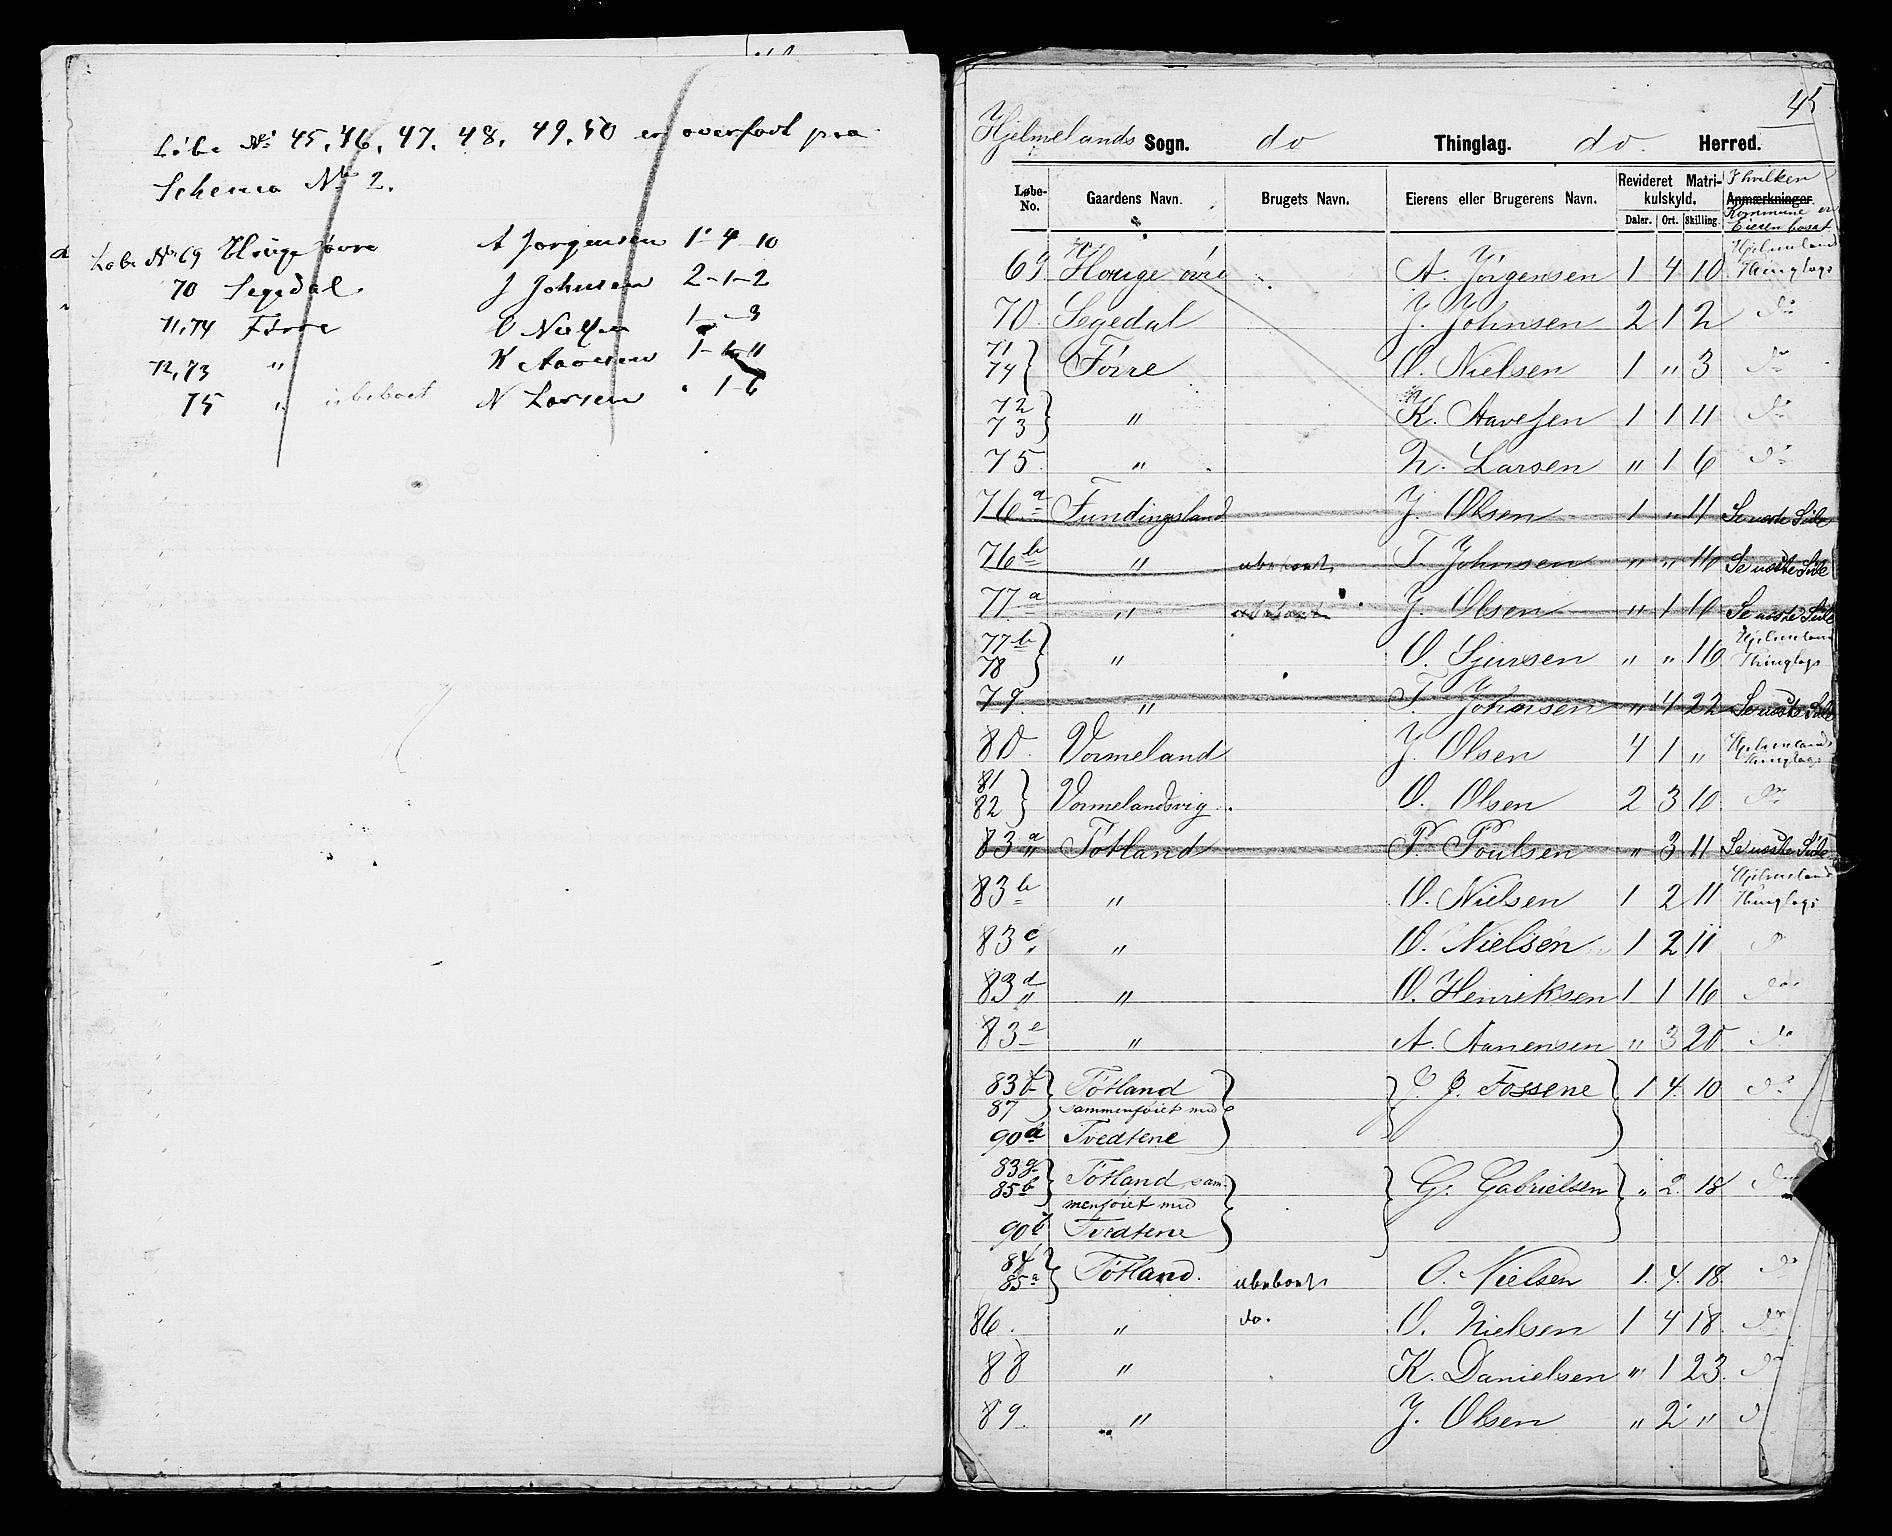 Løbe No 45, 46, 47, 48, 49, 50 er overført paa
Schema No 2.
Løbe No 69 Houge øvre A Jørgensen 1 - 4 - 10
70 Segedal J Johnsen 2 - 1 - 2
71, 74 Førre O Nielsen 1 - „ - 3
72, 73 „ K Aavesen 1 - 1 - 11
75 „ ubeboet N Larsen „ 1 - 6
45
Hjelmelands Sogn. do Thinglag. do. Herred.
Løbe-No. Gaardens Navn. Brugets Navn. Eierens eller Brugerens Navn. Revideret Matrikulskyld. Daler. Ort. Skilling. Anmærkninger. I hvilken Kommune er Eieren bosat
69 Houge øvre A. Jørgensen 1 4 10 Hjelmeland Thinglags
70 Segedal J. Johnsen 2 1 2 do
71 74 } Førre O. Nielsen 1 „ 3 do
72 73 } „ K. Aavesen 1 1 11 do
75. „ N. Larsen „ 1 6 do
76 a Fundingsland J. Olsen 1 „ 11 Se næste Side
76 b „ ubeboet T. Johnsen „ „ 16 Se næste Side
77 a „ ubeboet J. Olsen „ 1 16 Se næste Side
77 b 78 } „ O. Sjursen „ „ 16 Hjelmeland Thinglags
79. „ T. Johnsen „ 4 22 Se næste Side
80. Vormeland J. Olsen 4 1 „ Hjelmelands Thinglags
81 82 } Vormelandsvig. O. Olsen 2 3 10 do
83 a Tøtland P. Poulsen „ 3 11 Se næste Side
83 b „ O. Nielsen 1 2 11 Hjelmeland Thinglags
83 c „ O. Nielsen 1 2 11
83 d „ O. Henriksen 1 1 16 do
83 e „ A. Aanensen „ 3 20 do
83 f } Tøtland J. Fossene 1 4 10 do
87 sammenføiet med
90 a Tvedtene
83 g 85 b } Tøtland, sam- G. Gabrielsen „ 2 18
menføiet med
90 b Tvedtene
84 85 a } Tøtland. ubeboet O. Nielsen 1. 4. 18 do
86. „ do. O. Nielsen 1 4 18 do
88 „ K. Danielsen „ 1 23. do
89. „ J. Olsen „ 2 „